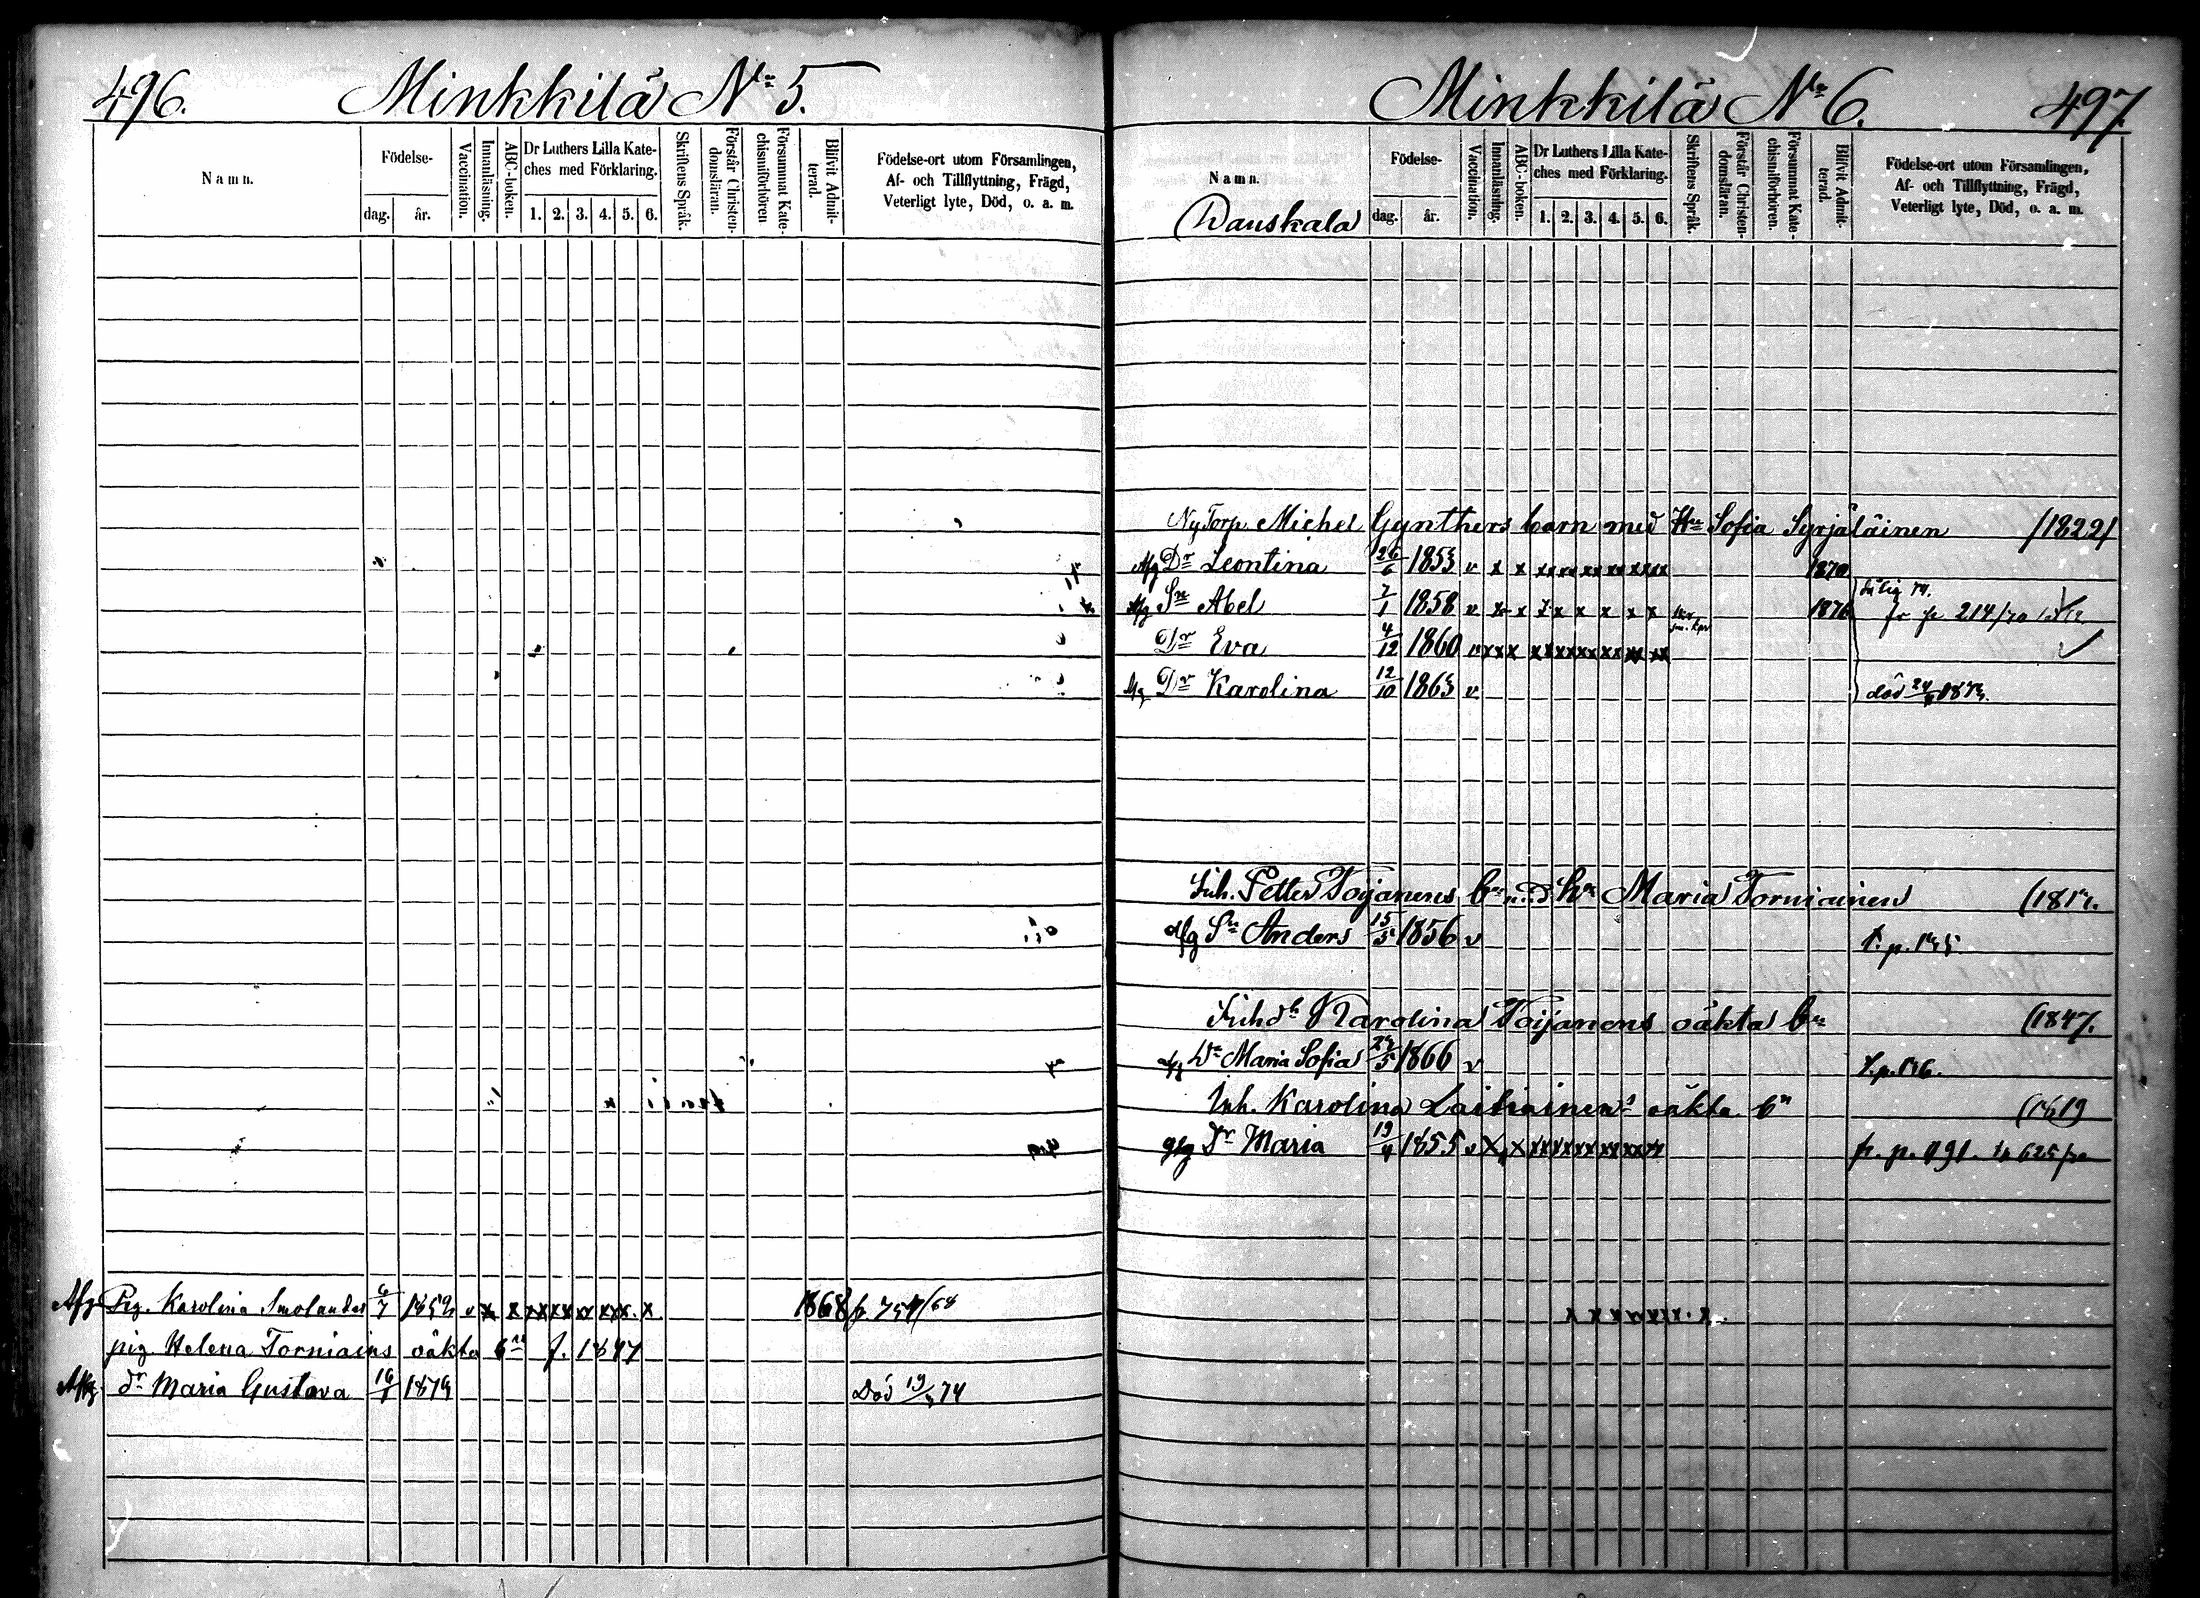 496. Minkkilä No 5.
Namn.
Födelse-
dag. år.
Vaccination.
Innanläsning.
ABC-boken.
Dr Luthers Lilla Kate-
ches med Förklaring.
1. 2. 3. 4. 5. 6.
Skriftens Språk.
Förstår Christen-
domsläran.
Försummat Kate-
chismiförhören
Blifvit Admit-
terad.
Födelse-ort utom Församlingen,
Af- och Tillflyttning, Frägd,
Veterligt lyte, Död, o. a. m.
Afg Pig. Karolina Smolander 6/7 v x x xx xx xx xx x 1868
pig Helena Torniains oäkta bn f. 1847
dr Maria Gustava 16/1 Död 74
Minkkilä No 6. 497.
Namn.
Födelse-
dag. år.
Vaccination.
Innanläsning.
ABC-boken.
Dr Luthers Lilla Kate-
ches med Förklaring.
1. 2. 3. 4. 5. 6.
Skriftens Språk.
Förstår Christen-
domsläran.
Försummat Kate-
chismiförhören.
Blifvit Admit-
terad.
Födelse-ort utom Församlingen,
Af- och Tillflyttning, Frägd,
Veterligt lyte, Död, o. a. m.
Ny Torp. Michel Gynthers barn med Hu Sofia Syrjäläinen /1822/
Afg Dr Leontina 26/6 1853 v x x xx xx xx xx xx xx 1870
Afg Sn Abel 7/1 1858 v x x x x x x x 1876 214/70
Dr Eva 4/12 1860 v xx x xx xx xx xx xx xx
Afg Dr Karolina 12/10 1863 v död
Inh. Petter Toijanens bn hu Maria Torniainen
afg Sn Anders 15/5 1856 v
Inhdr Karolina Toijanens oäkta bn (1847.
afg Dr Maria Sofia 1866 v
Inh. Karolina Laitiainen's oäkta bn (1819
afg Dr Maria 19/4 1855 v x x xx xx xx xx xx xx fr. p. 625/70
x x x x x x x